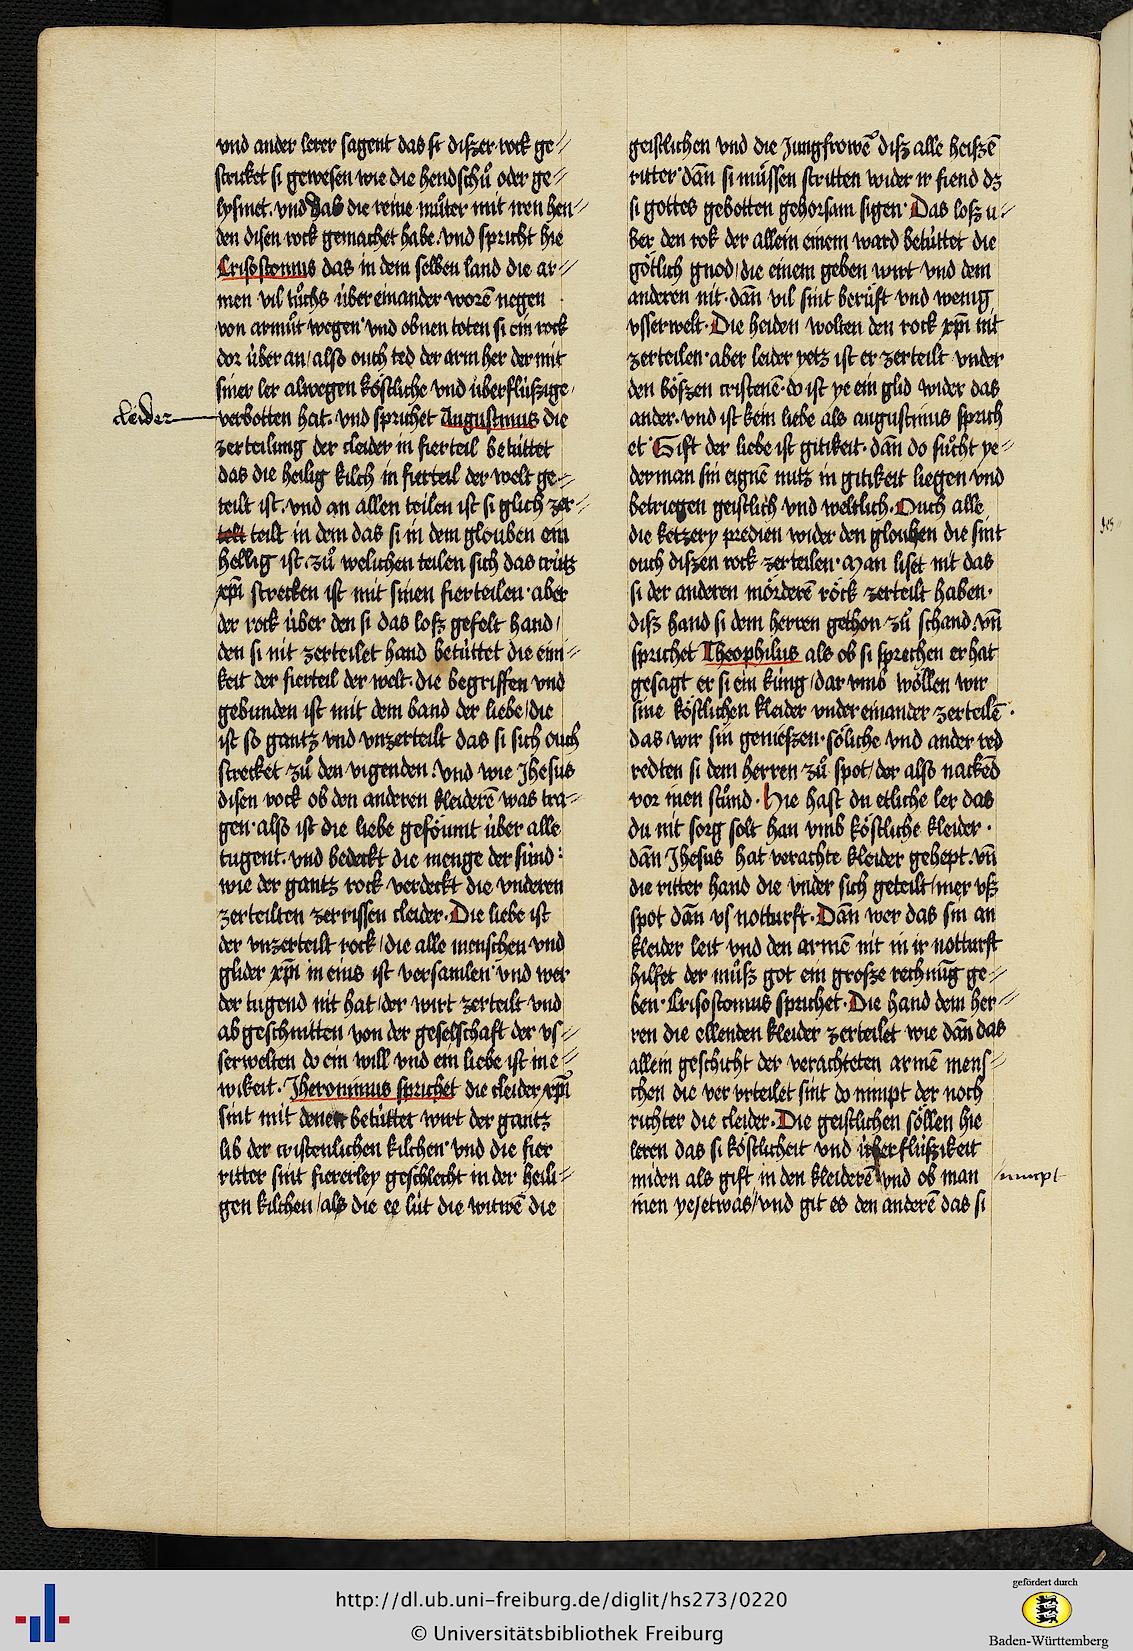 vnd ander lerer sagent das si diszer rock ge//
stricket si gewesen wie die hendschuͦ oder ge//
lysmet. vnd das die reine muͦter mit iren hen//
den disen rock gemachet habe. vnd spricht hie
Crisostomus das in dem selben land die ar//
men vil tuͦchs über einander woren negen
von armuͦt wegen vnd obnen toten si ein rock
dor über an / also ouch ted der arm her der mit
siner ler alwegen köstliche vnd überflüszige
cleider
verbotten hat. vnd sprichet Augustinus die
zerteilung der cleider in fierteil betüttet
das die heilig kilch in fierteil der welt ge//
teilt ist. vnd an allen teilen ist si glich zer//
teilt teilt in dem das si in dem glouben ein
hellig ist. zuͦ welichen teilen sich das crütz
xp̄i strecken ist mit sinen fierteilen. aber
der rock über den si das losz gefelt hand /
den si nit zerteilet hand betüttet die eini//
keit der fierteil der welt. die begriffen vnd
gebunden ist mit dem band der liebe / die
ist so gantz vnd vnzerteilt das si sich ouch
strecket zuͦ den vigenden. vnd wie Jhesus
disen rock ob den anderen kleiderē was tra//
gen. also ist die liebe geföumt über alle
tugent. vnd bedeckt die menge der sünd:
wie der gantz rock verdeckt die vnderen
zerteilten zerrissen cleider. Die liebe ist
der vnzerteilt rock / die alle menschen vnd
glider xp̄i in eins ist versamlen vnd wer
der tugend nit hat / der wirt zerteilt vnd
abgeschnitten von der geselschaft der vs//
serwelten do ein will vnd ein liebe ist in e//
wikeit. Jheronimus sprichet die cleider xp̄i
sint mit denen betüttet wirt der gantz
lib der cristenlichen kilchen vnd die fier
ritter sint fiererley geschlecht in der heili//
gen kilchen / als die ee lüt die witwē die
geistlichen vnd die Jungfrowē disz alle heiszē
ritter dān si müssen stritten wider ir fiend dz
si gottes gebotten gehorsam sigen. Das losz ü//
ber den rok der allein einem ward betüttet die
götlich gnod / die einem geben wirt vnd dem
anderen nit. dān vil sint berüft vnd wenig
vsserwelt. Die heiden wolten den rock xp̄i nit
zerteilen. aber leider yetz ist er zerteilt vnder
den böszen cristenē. do ist ye ein glid wider das
ander. vnd ist kein liebe als augustinus sprich
et Gift der liebe ist gitikeit. dān do suͦcht ye//
derman sin eignē nutz in gitikeit liegen vnd
betriegen geistlich vnd weltlich. Ouch alle
die ketzery predien wider den glouben die sint
ouch diszen rock zerteilen. Man liset nit das
si der anderen mörderē röck zerteilt haben.
disz hand si dem herren gethon zuͦ schand. vn̄
sprichet Theophilus als ob si sprechen er hat
gesagt er si ein küng / dar vmb wöllen wir
sine köstlichen kleider vnder einander zerteilē.
das wir sin genieszen. söliche vnd ander red
redten si dem herren zuͦ spot / der also nackēd
vor inen stuͦnd. Hie hast du etliche ler das
du nit sorg solt han vmb köstliche kleider.
dān Jhesus hat verachte kleider gehept. vn̄
die ritter hand die vnder sich geteilt / mer vsz
spot dān vs notturft. Dān wer das sin an
kleider leit vnd den armē nit in ir notturft
hilfet der muͦsz got ein grosze rechnūg ge//
ben. Crisostomus sprichet. Die hand dem her//
ren die ellenden kleider zerteilet wie dān das
allein geschicht der verachteten armē mens//
chen die ver vrteilet sint do nimpt der noch
richter die cleider. Die geistlichen söllen hie
leren das si köstlicheit vnd überflüszikeit
miden als gift in den kleiderē vnd ob man
/ nimpt
inen ye / etwas / vnd git es den anderē das si
http://dl.ub.uni-freiburg.de/diglit/hs273/0220
© Universitätsbibliothek Freiburg
gefördert durch
Baden-Württemberg